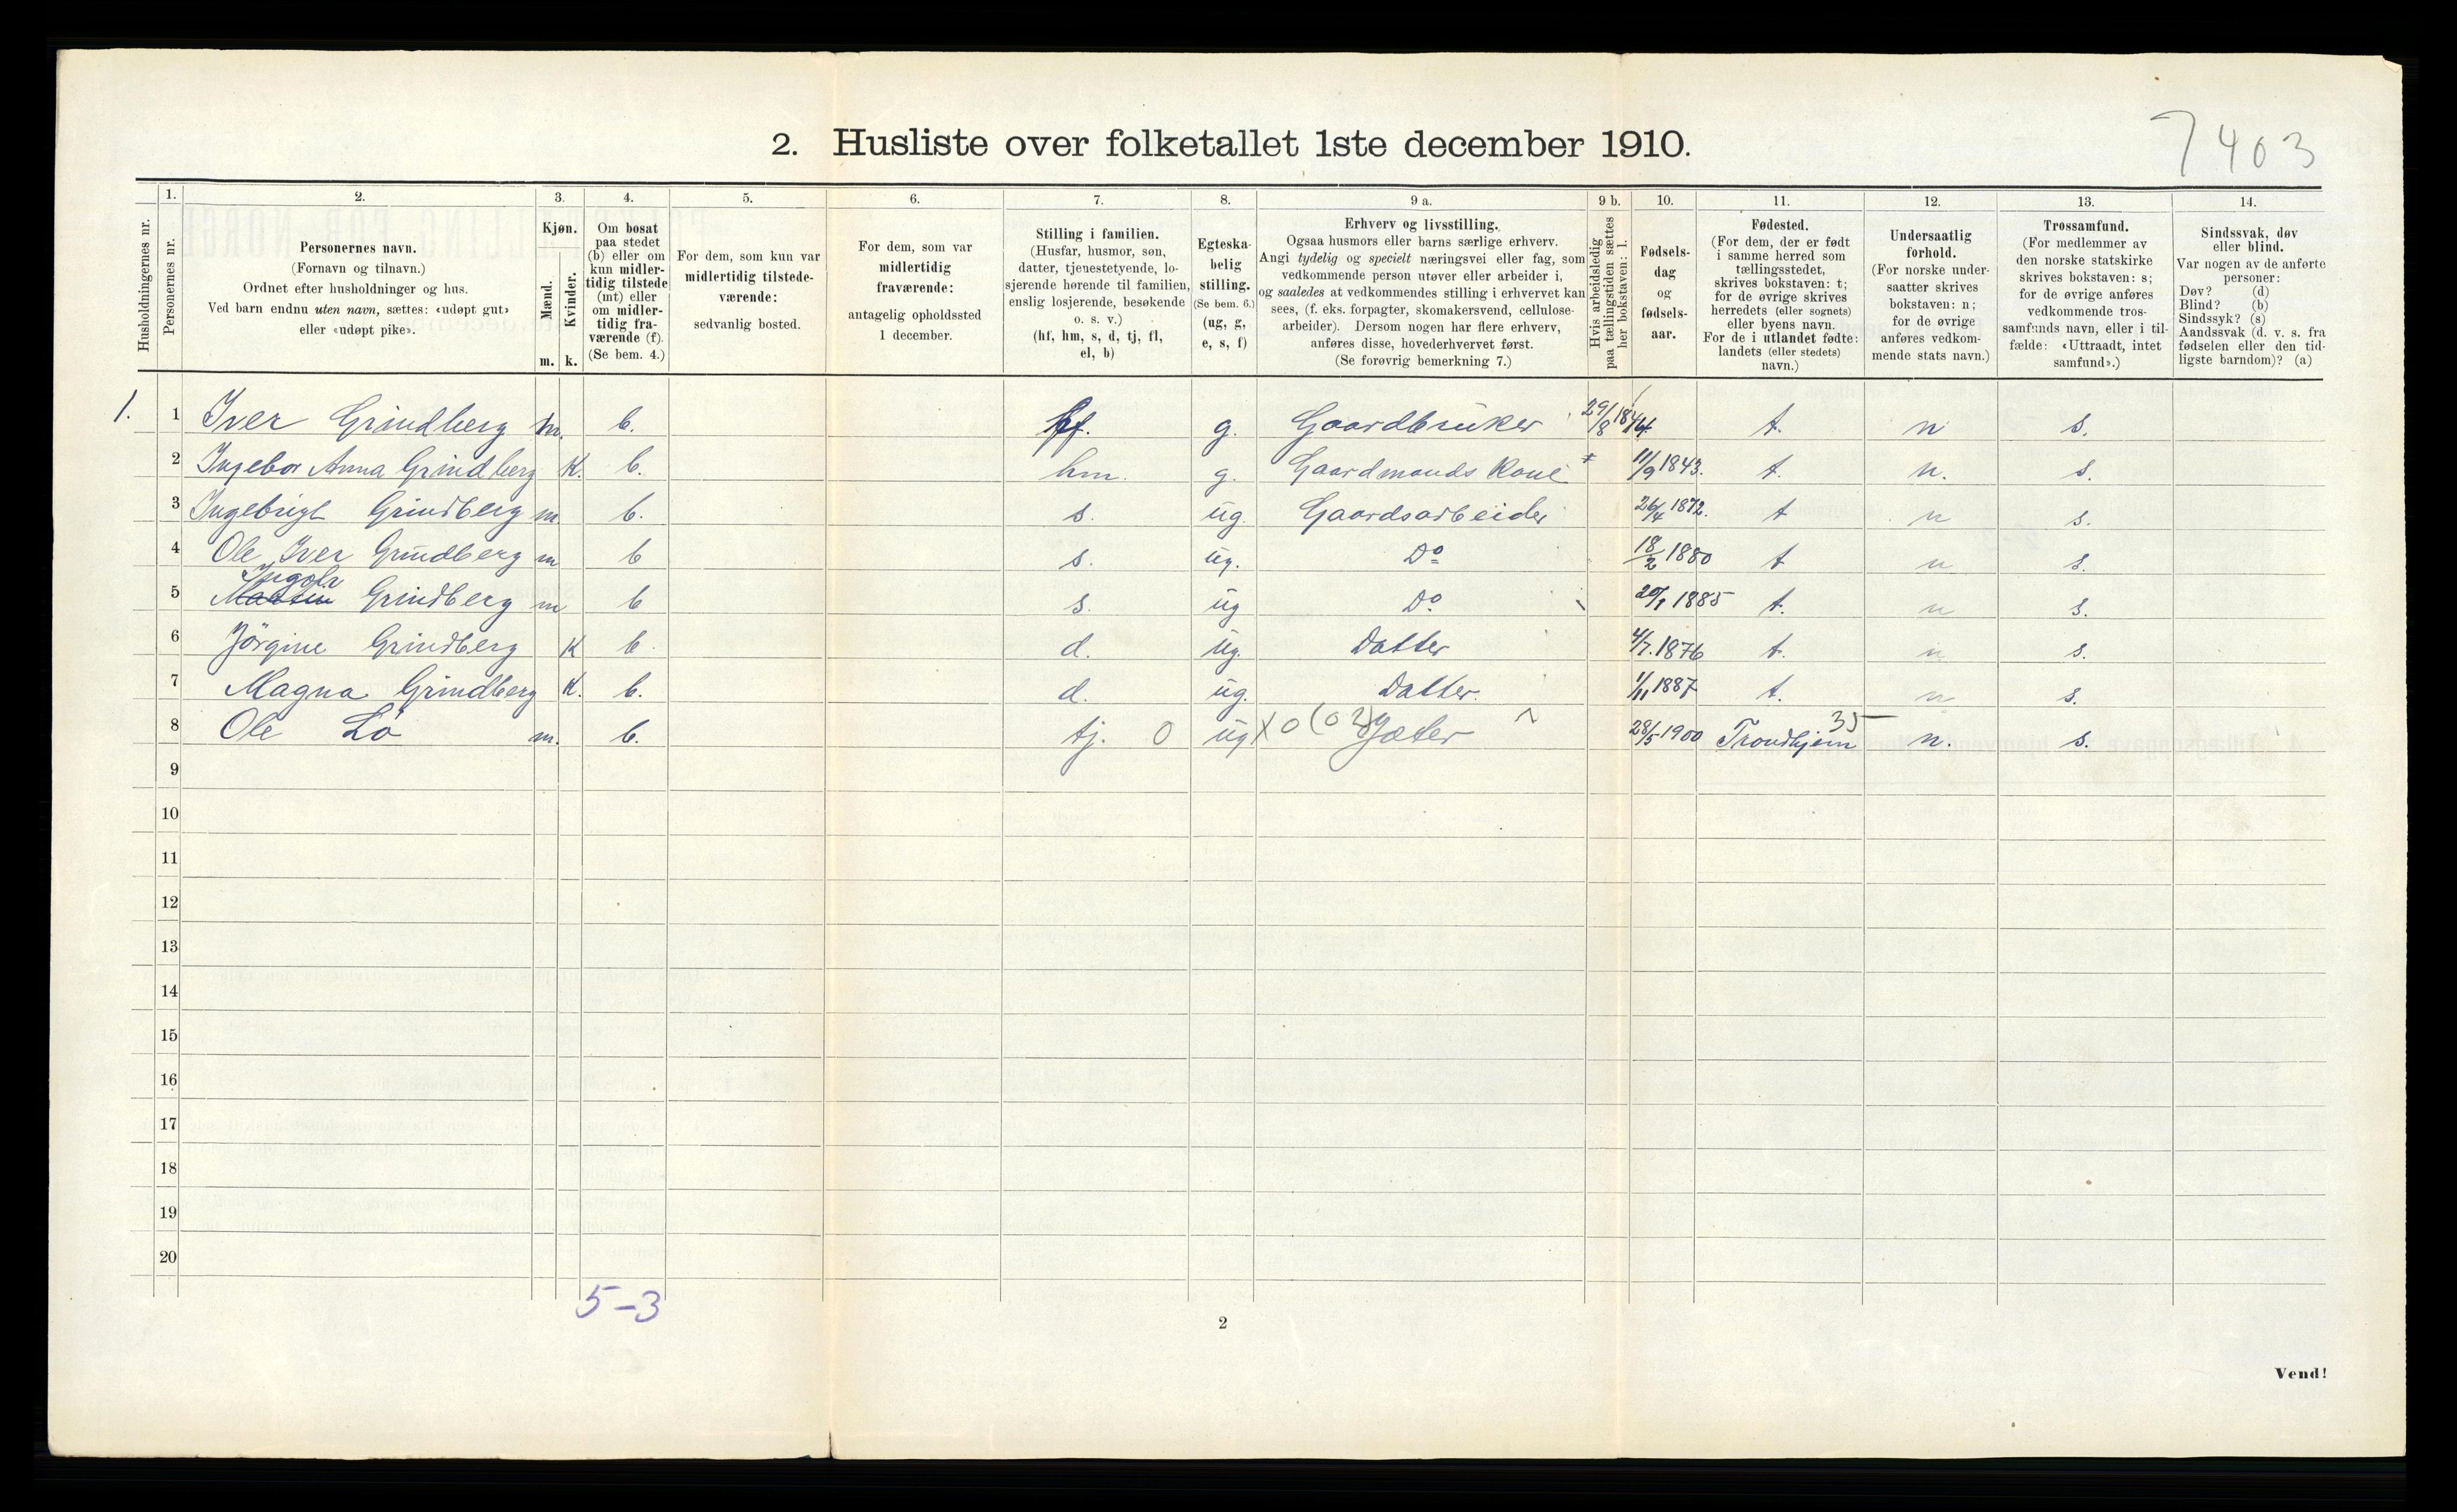 7403
2. Husliste over folketallet 1ste december 1910.
Husholdningernes nr.
1.
Personernes nr.
2.
Personernes navn.
(Fornavn og tilnavn.)
Ordnet efter husholdninger og hus.
Ved barn endnu uten navn, sættes: «udøpt gut»
eller «udøpt pike».
3.
Kjøn.
Mænd.
Kvinder.
m. k.
4.
Om bosat
paa stedet
(b) eller om
kun midler-
tidig tilstede
(mt) eller
om midler-
tidig fra-
værende (f).
(Se bem. 4.)
5.
For dem, som kun var
midlertidig tilstede-
værende:
sedvanlig bosted.
6.
For dem, som var
midlertidig
fraværende:
antagelig opholdssted
1 december.
7.
Stilling i familien.
(Husfar, husmor, søn,
datter, tjenestetyende, lo-
sjerende hørende til familien,
enslig losjerende, besøkende
o. s. v.)
(hf, hm, s, d, tj, fl,
el, b)
8.
Egteska-
belig
stilling.
(Se bem. 6.)
(ug, g,
e, s, f)
9 a.
Erhverv og livsstilling.
Ogsaa husmors eller barns særlige erhverv.
Angi tydelig og specielt næringsvei eller fag, som
vedkommende person utøver eller arbeider i,
og saaledes at vedkommendes stilling i erhvervet kan
sees, (f. eks. forpagter, skomakersvend, cellulose-
arbeider). Dersom nogen har flere erhverv,
anføres disse, hovederhvervet først.
(Se forøvrig bemerkning 7.)
9 b.
Hvis arbeidsledig
paa tællingstiden sættes
her bokstaven: l.
10.
Fødsels-
dag
og
fødsels-
aar.
11.
Fødested.
(For dem, der er født
i samme herred som
tællingsstedet,
skrives bokstaven: t;
for de øvrige skrives
herredets (eller sognets)
eller byens navn.
For de i utlandet fødte:
landets (eller stedets)
navn.)
12.
Undersaatlig
forhold.
(For norske under-
saatter skrives
bokstaven: n;
for de øvrige
anføres vedkom-
mende stats navn.)
13.
Trossamfund.
(For medlemmer av
den norske statskirke
skrives bokstaven: s;
for de øvrige anføres
vedkommende tros-
samfunds navn, eller i til-
fælde: «Uttraadt, intet
samfund».)
14.
Sindssvak, døv
eller blind.
Var nogen av de anførte
personer:
Døv? (d)
Blind? (b)
Sindssyk? (s)
Aandssvak (d. v. s. fra
fødselen eller den tid-
ligste barndom)? (a)
1. 1 Iver Grindberg m. b. hf. g. Gaardbruker 29/8 1844 t. n s.
2 Ingebor Anna Grindberg K. b. hm. g. Gaardmands Kone 11/9 1843. t. n. s.
3 Ingebrigt Grindberg m. b. s. ug. Gaardsarbeider 26/4 1872. t n s.
4 Ole Iver Grindberg m b s. ug. Do 18/2 1880 t n s.
Ingolv
5 Martin Grindberg m b s. ug Do 20/1 1885 t. n s.
6 Jörgine Grindberg K b d. ug. Datter 4/7. 1876 t. n s.
7 Magna Grindberg K. b. d. ug. Datter. 1/11 1887 t. n s.
8 Ole Lö m. b. tj. 0 ug X 0 (02) Gjæter 28/5 1900 Trondhjem 35 n. s.
9
10
11
12
13
14
15
16
17
18
19
20
5-3
2
Vend!